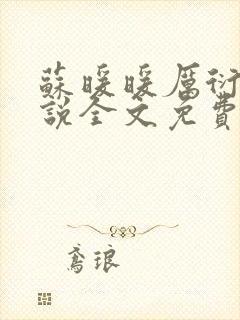 蘇暖暖厲衍
說全文免費
鳶琅